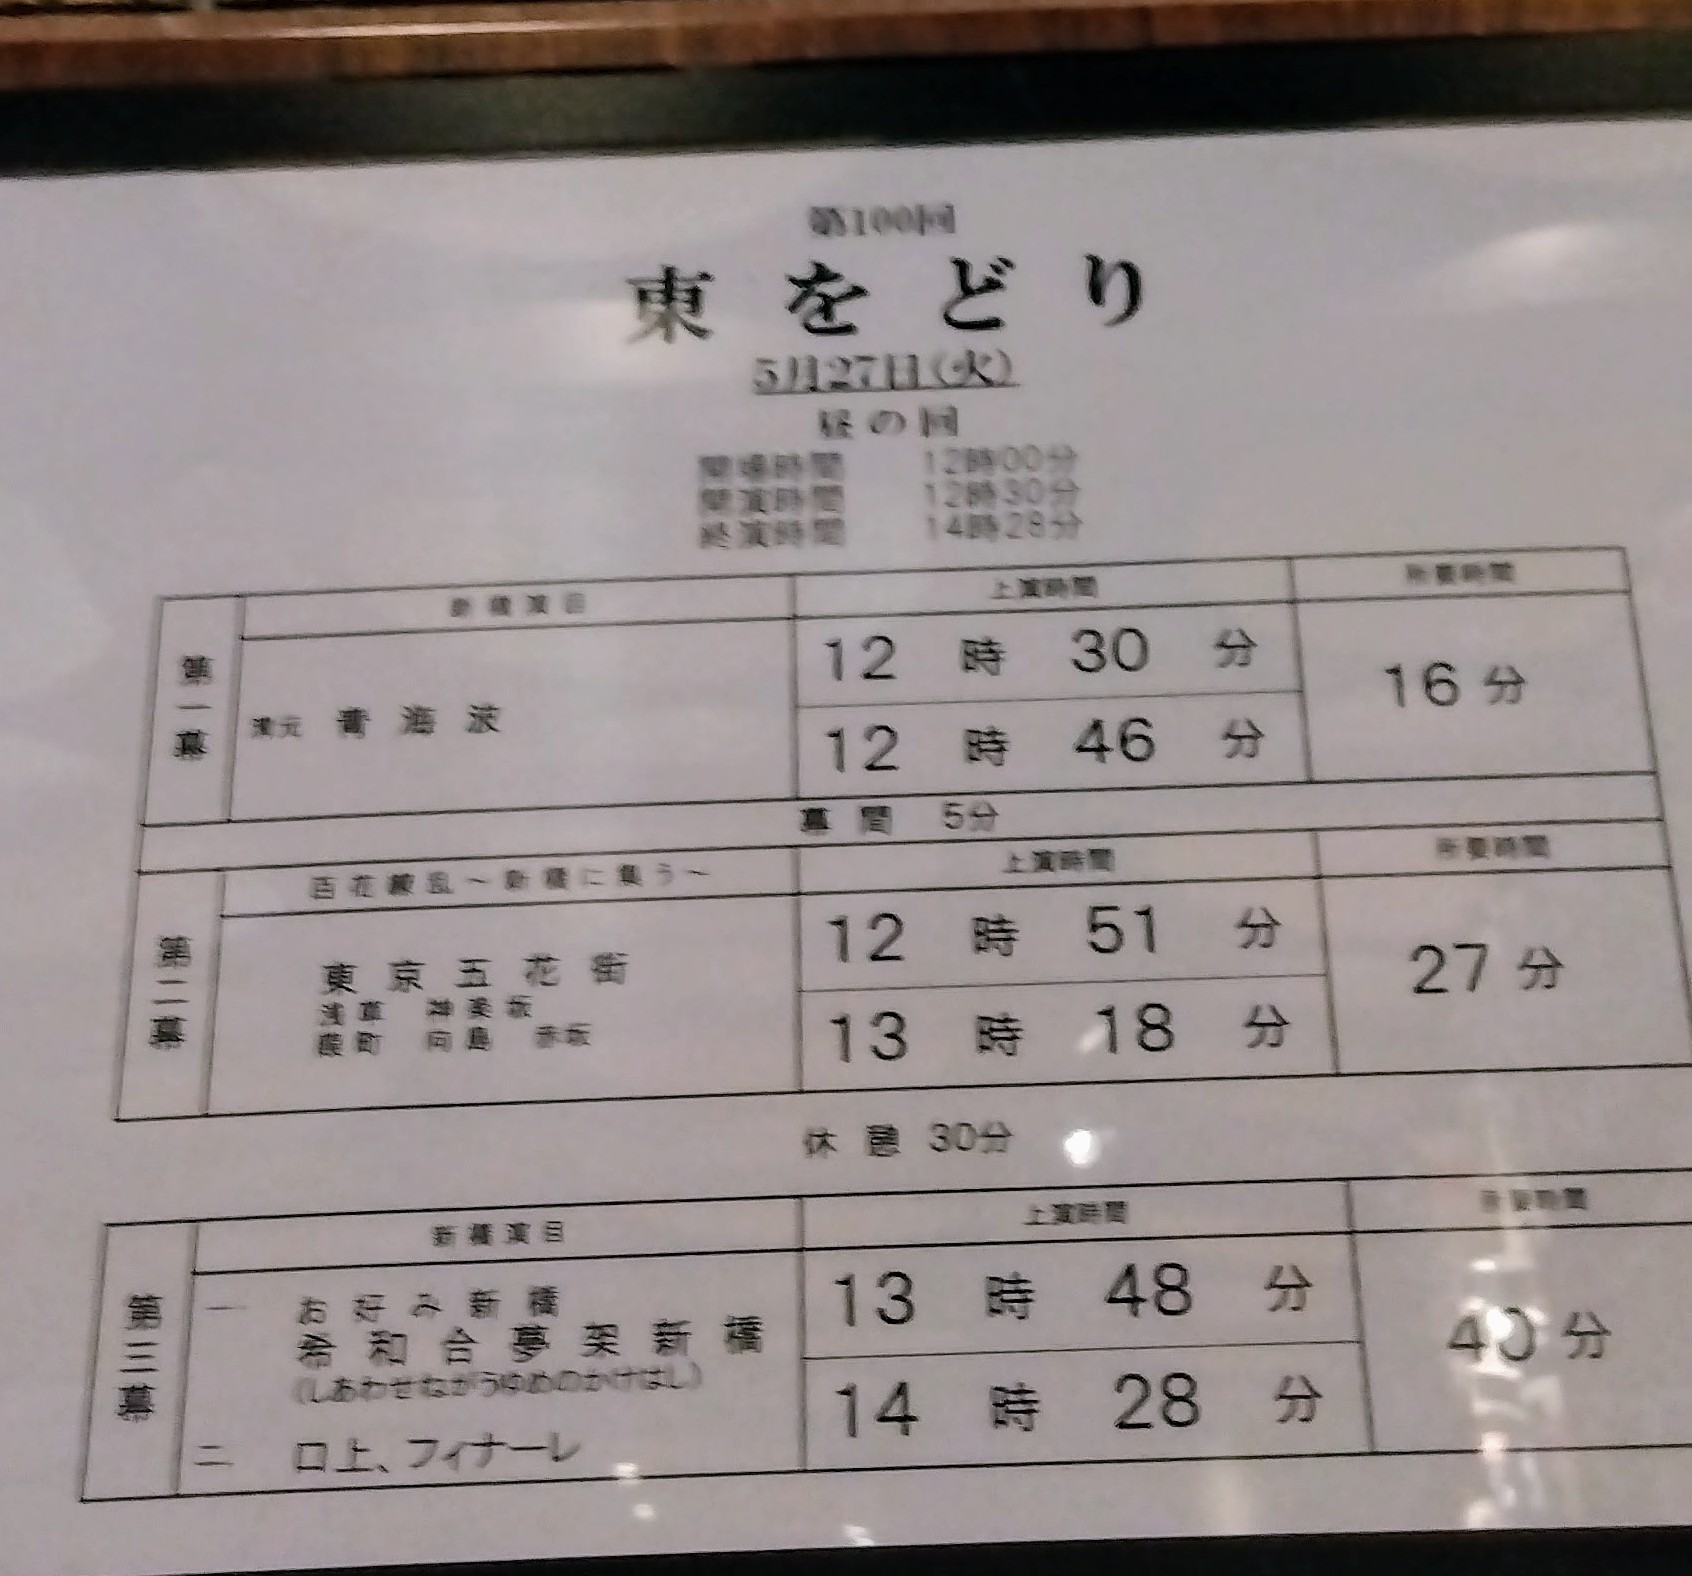 第100回
東をどり
5月27日(火)
昼の回
開場時間 12時00分
開演時間 12時30分
終演時間 14時28分
第一幕
新橋演目 上演時間 所要時間
青海波
12時30分
12時46分
16分
幕間 5分
第二幕
百花繚乱～新橋に集う～ 上演時間 所要時間
東京五花街
浅草 神楽坂
葭町 向島 赤坂
12時51分
13時18分
27分
休憩 30分
第三幕
新橋演目 上演時間 所要時間
一 お好み新橋
希和合夢架新橋
(しあわせながうゆめのかけはし)
二 口上、フィナーレ
13時48分
14時28分
40分